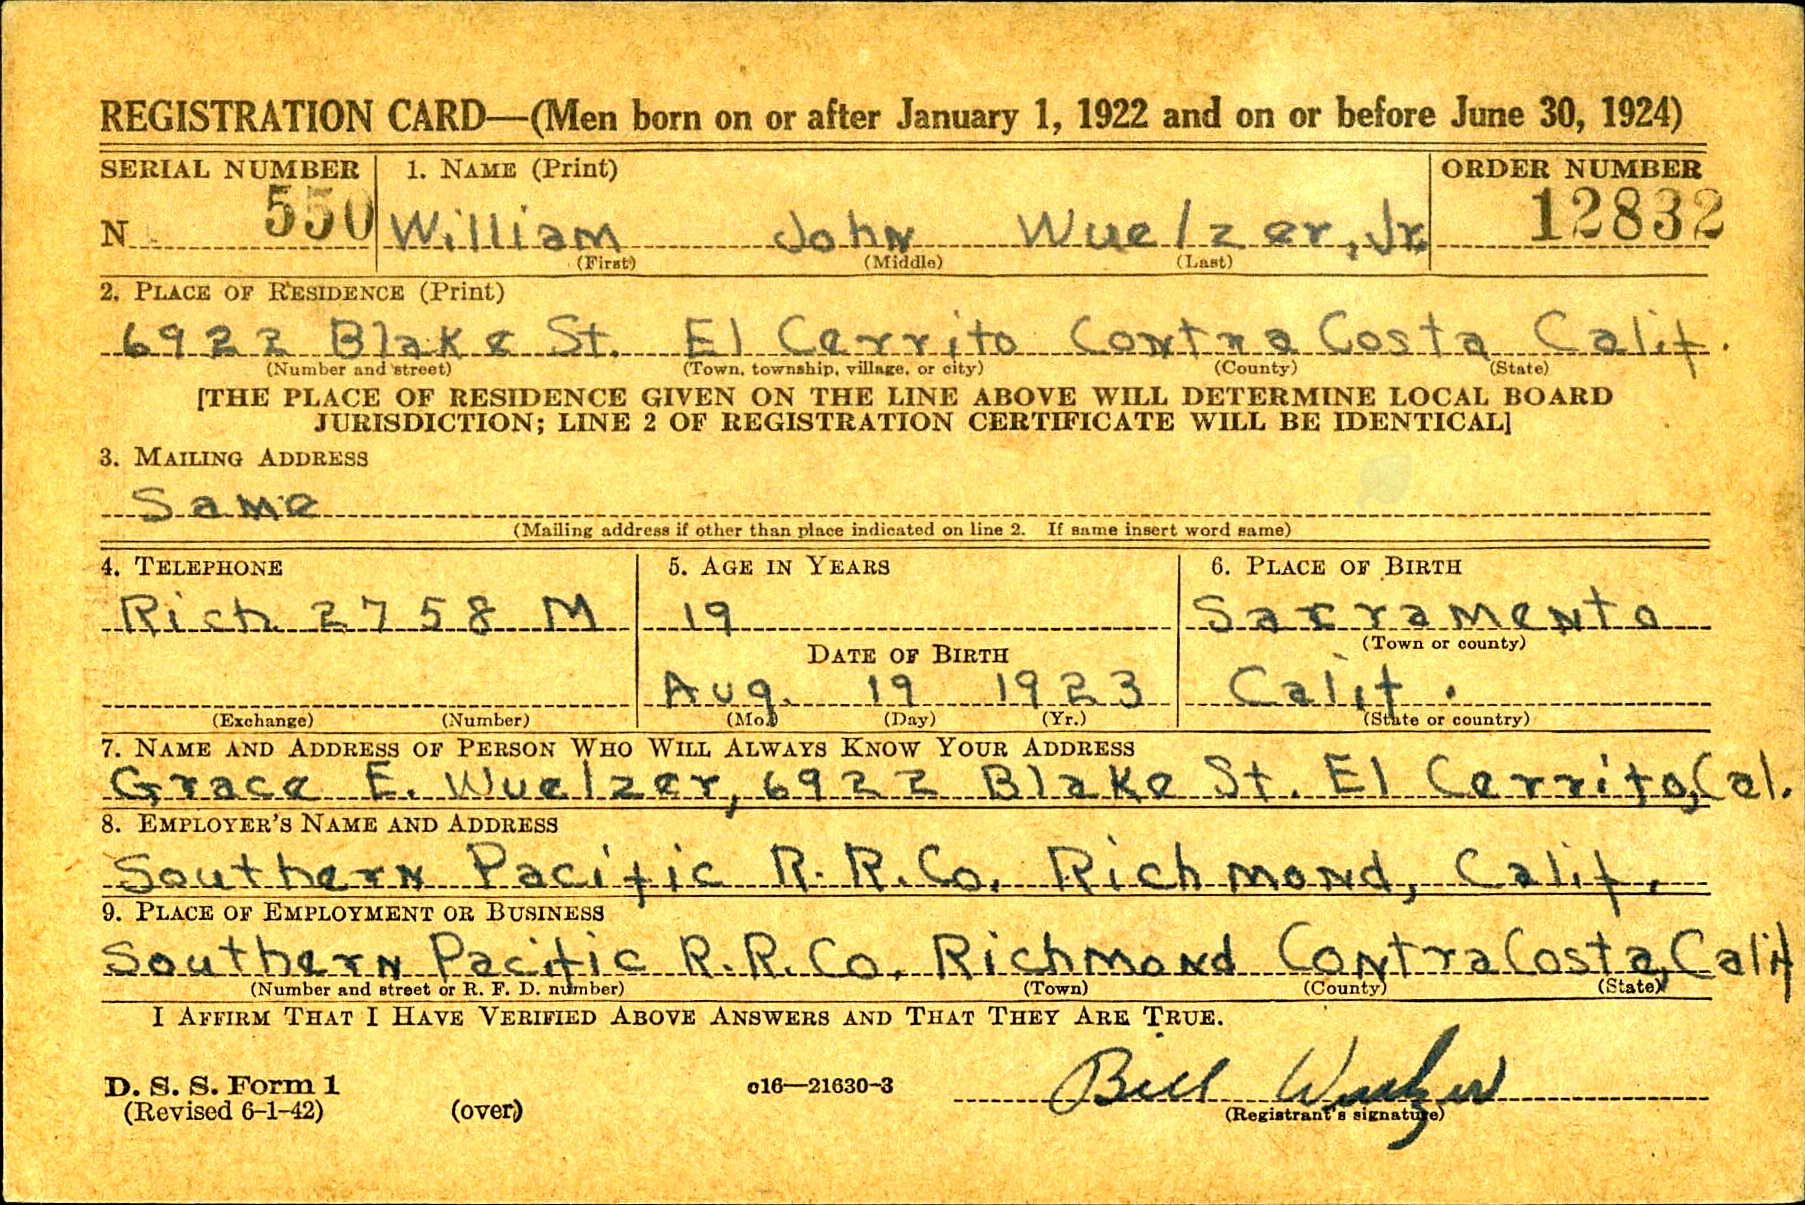 REGISTRATION CARD—(Men born on or after January 1, 1922 and on or before June 30, 1924)
SERIAL NUMBER 1. NAME (Print) ORDER NUMBER
N 550 William John Wuelzer, Jr. 12832
(First) (Middle) (Last)
2. PLACE OF RESIDENCE (Print)
6922 Blake St. El Cerrito Contra Costa Calif.
(Number and street) (Town, township, village, or city) (County) (State)
[THE PLACE OF RESIDENCE GIVEN ON THE LINE ABOVE WILL DETERMINE LOCAL BOARD
JURISDICTION; LINE 2 OF REGISTRATION CERTIFICATE WILL BE IDENTICAL]
3. MAILING ADDRESS
Same
(Mailing address if other than place indicated on line 2. If same insert word same)
4. TELEPHONE 5. AGE IN YEARS 6. PLACE OF BIRTH
Rich 2758 M 19 Sacramento
(Town or county)
DATE OF BIRTH
Aug. 19 1923 Calif.
(Exchange) (Number) (Mo.) (Day) (Yr.) (State or country)
7. NAME AND ADDRESS OF PERSON WHO WILL ALWAYS KNOW YOUR ADDRESS
Grace E. Wuelzer, 6922 Blake St. El Cerrito, Cal.
8. EMPLOYER'S NAME AND ADDRESS
Southern Pacific R.R. Co. Richmond, Calif.
9. PLACE OF EMPLOYMENT OR BUSINESS
Southern Pacific R.R. Co. Richmond Contra Costa, Calif
(Number and street or R. F. D. number) (Town) (County) (State)
I AFFIRM THAT I HAVE VERIFIED ABOVE ANSWERS AND THAT THEY ARE TRUE.
D. S. S. Form 1 c16—21630-3 Bill Wuelzer
(Revised 6-1-42) (over) (Registrant's signature)